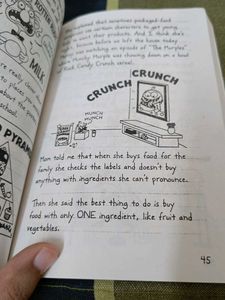 ROTTEN
MILK
school.
D PYRAM
explained that sometimes packaged-food
companies use cartoon characters to get young
to want their products. And I think she's
right, because before we left the house today
was watching an episode of "The Murples"
Munchy Murple was chowing down on a bowl
Rock Candy Crunch cereal.
CRUNCH
CRUNCH
MUNCH
MUNCH
Mom told me that when she buys food for the
family she checks the labels and doesn't buy
anything with ingredients she can't pronounce.
Then she said the best thing to do is buy
food with only ONE ingredient, like fruit and
vegetables.
45